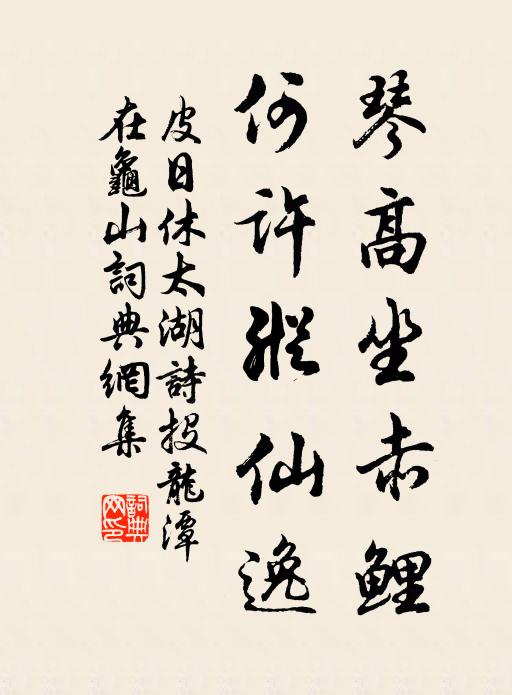 琴高坐赤鯉
何許縱仙逸
皮日休太湖詩投龍潭
在龜山詞典網集
詞典
网印